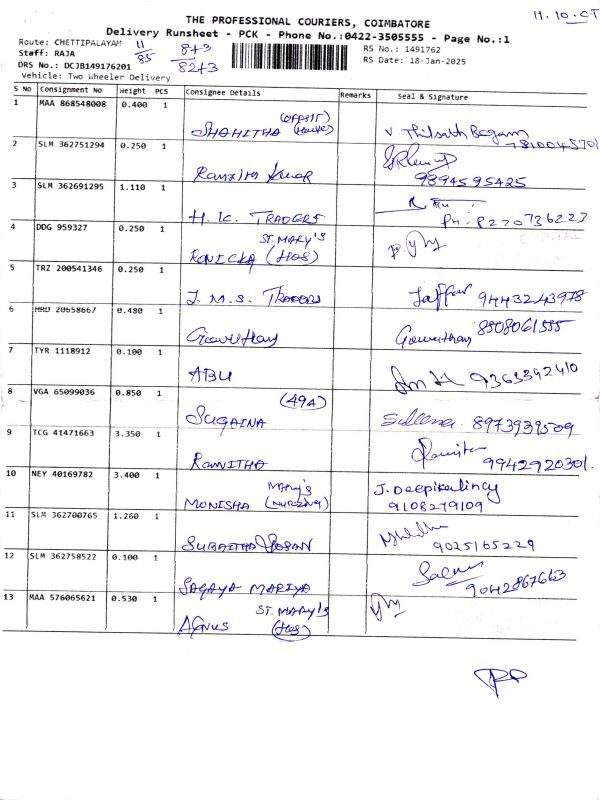 THE PROFESSIONAL COURIERS, COIMBATORE
11.10.CT
Delivery Runsheet - PCK - Phone No.:0422-3505555 - Page No.:1
Route: CHETTIPALAYAM
11
85
8+3
82+3
RS No.: 1491762
Staff: RAJA
RS Date: 18-Jan-2025
DRS No.: DCJB149176201
Vehicle: Two Wheeler Delivery
S No Consignment No Weight PCS Consignee Details Remarks Seal & Signature
1 MAA 868548008 0.400 1
SHAHITHA
V Thilsath Begam
7810045701
2 SLM 362751294 0.250 1
Kumar
9894595425
3 SLM 362691295 1.110 1
H.K. TRADERS
Ph: 8220736223
4 DDG 959327 0.250 1
ST.MARY'S
(HOS)
5 TRZ 200541346 0.250 1
J.M.S. TRADERS
Jaffar 9443243978
6 HRD 20658667 0.480 1
Gowutham
Gowutham 8508061555
7 TYR 1118912 0.100 1
ABU
9363392410
8 VGA 65099036 0.850 1
(49A)
SUGAINA
8973939509
9 TCG 41471663 3.350 1
RANJITHA
9942920301.
10 NEY 40169782 3.400 1
MARY'S
MONISHA
J. Deepikalincy
9108279109
11 SLM 362700765 1.260 1
9025165229
12 SLM 362758522 0.100 1
SAGAYA MARIYA
9042867663
13 MAA 576065621 0.530 1
ST.MARY'S
AGNUS (HOS)